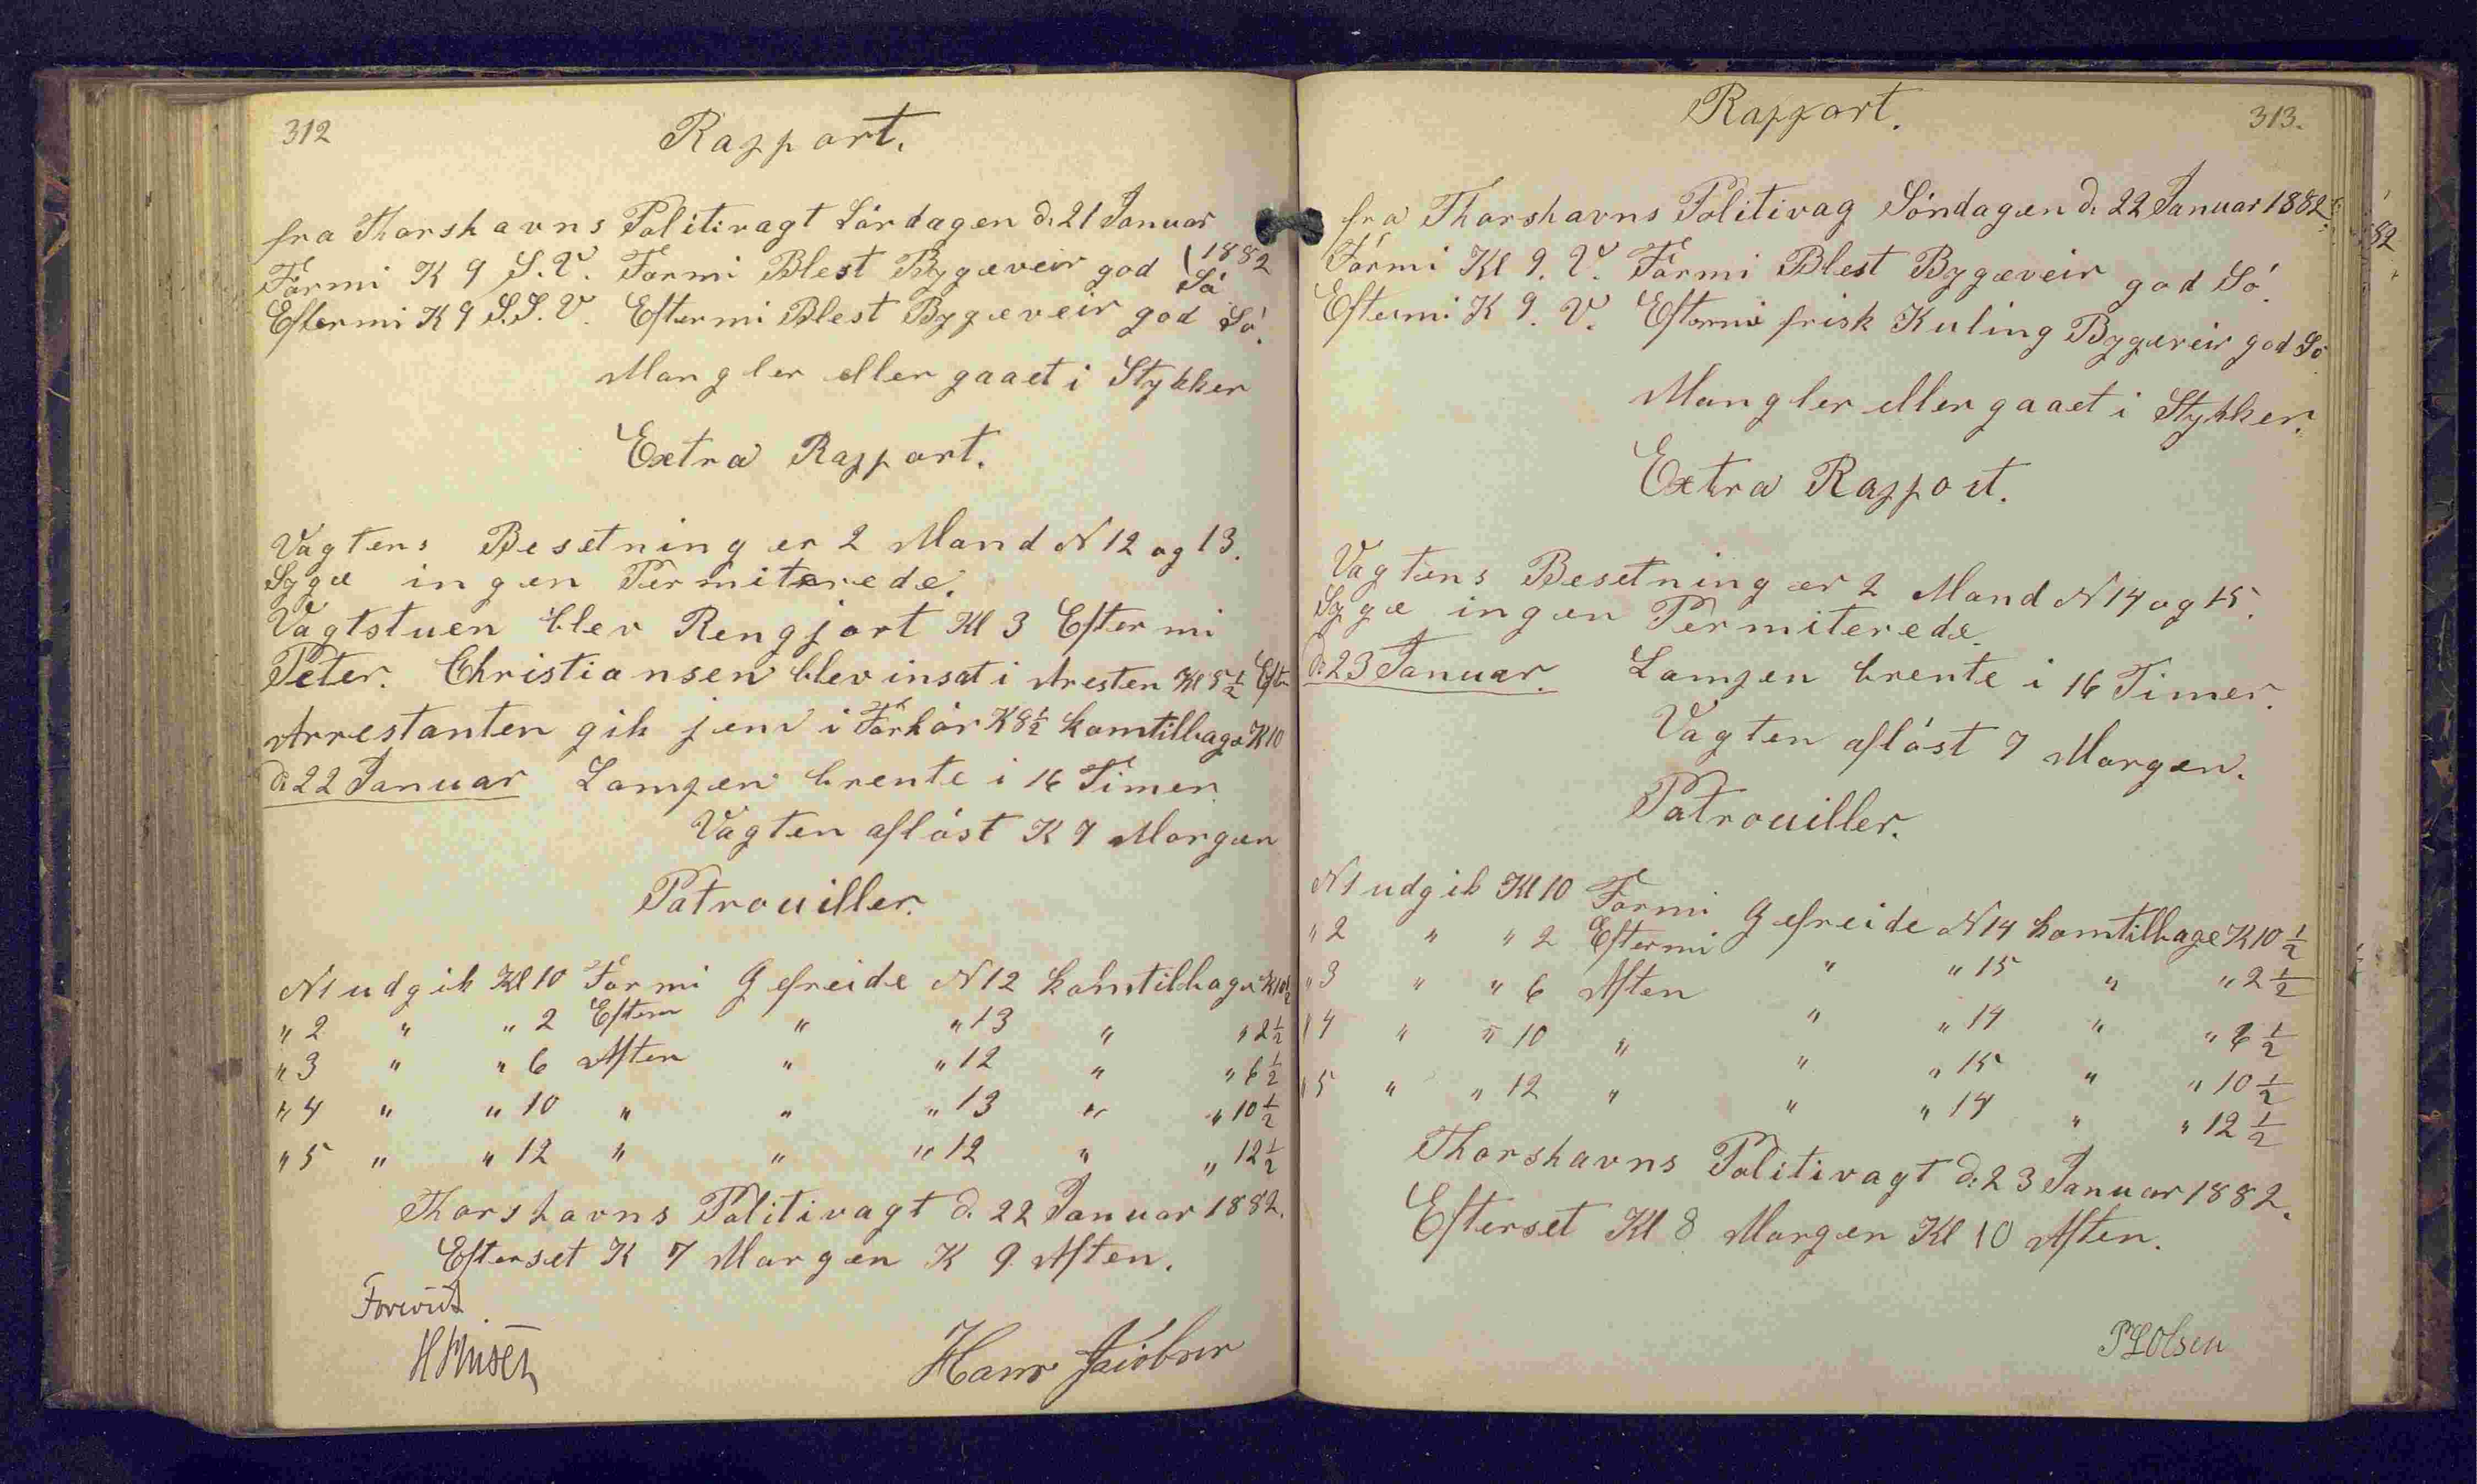 312
Rapport.
fra Thorshavns Politivagt Lördagen d. 21 Januar
1882
Formi K 9 S.V. Formi Blest Bygeveir god Sö
Eftermi K 9 S.S.V. Eftermi Blest Bygeveir god Sö.
Mangler eller gaaet i Stykker
Extra Rapport.
Vagtens Besetning er 2 Mand N 12 og 13.
Syge ingen Permiterede.
Vagtstuen blev Rengjort Kl 3 Eftermi
Peter. Christiansen blev insat i Aresten Kl 5½ Eft
Arrestanten gik jem i Forhör K 8½ komtilbage K 10
d. 22 Januar Lampen brente i 16 Timer
Vagten aflöst K 7 Morgen
Patrouiller.
N 1 udgik Kl 10 Formi Gefreide N 12 komtilbage K 10½
" 2 " " 2 Efterm " " 13 " " 2½
" 3 " " 6 Aften " " 12 " " 6½
" 4 " " 10 " " " 13 " " 10½
" 5 " " 12 " " " 12 " " 12½
Thorshavns Politivagt d. 22 Januar 1882.
Efterset K 7 Morgen K 9 Aften.
Forevist
Hans Jacobsen
Rapport.
313.
fra Thorshavns Politivag Söndagen d. 22 Januar 1882.
Formi Kl 9. V. Formi Blest Bygeveir god Sö.
Eftermi K 9. V. Eftermi frisk Kuling Bygeveir god Sö
Mangler eller gaaet i Stykker.
Extra Rapport.
Vagtens Besetning er 2 Mand N 14 og 15.
Syge ingen Permiterede.
d. 23 Januar. Lampen brente i 16 Timer.
Vagten aflöst 7 Morgen.
Patrouiller.
N 1 udgik Kl 10 Formi Gefreide N 14 komtilbage K 10½
" 2 " " 2 Eftermi " " 15 " " 2½
" 3 " " 6 Aften " " 14 " " 6½
" 4 " " 10 " " " 15 " " 10½
" 5 " " 12 " " " 14 " " 12½
Thorshavns Politivagt d. 23 Januar 1882.
Efterset Kl 8 Morgen Kl 10 Aften.
P L Olsen
82